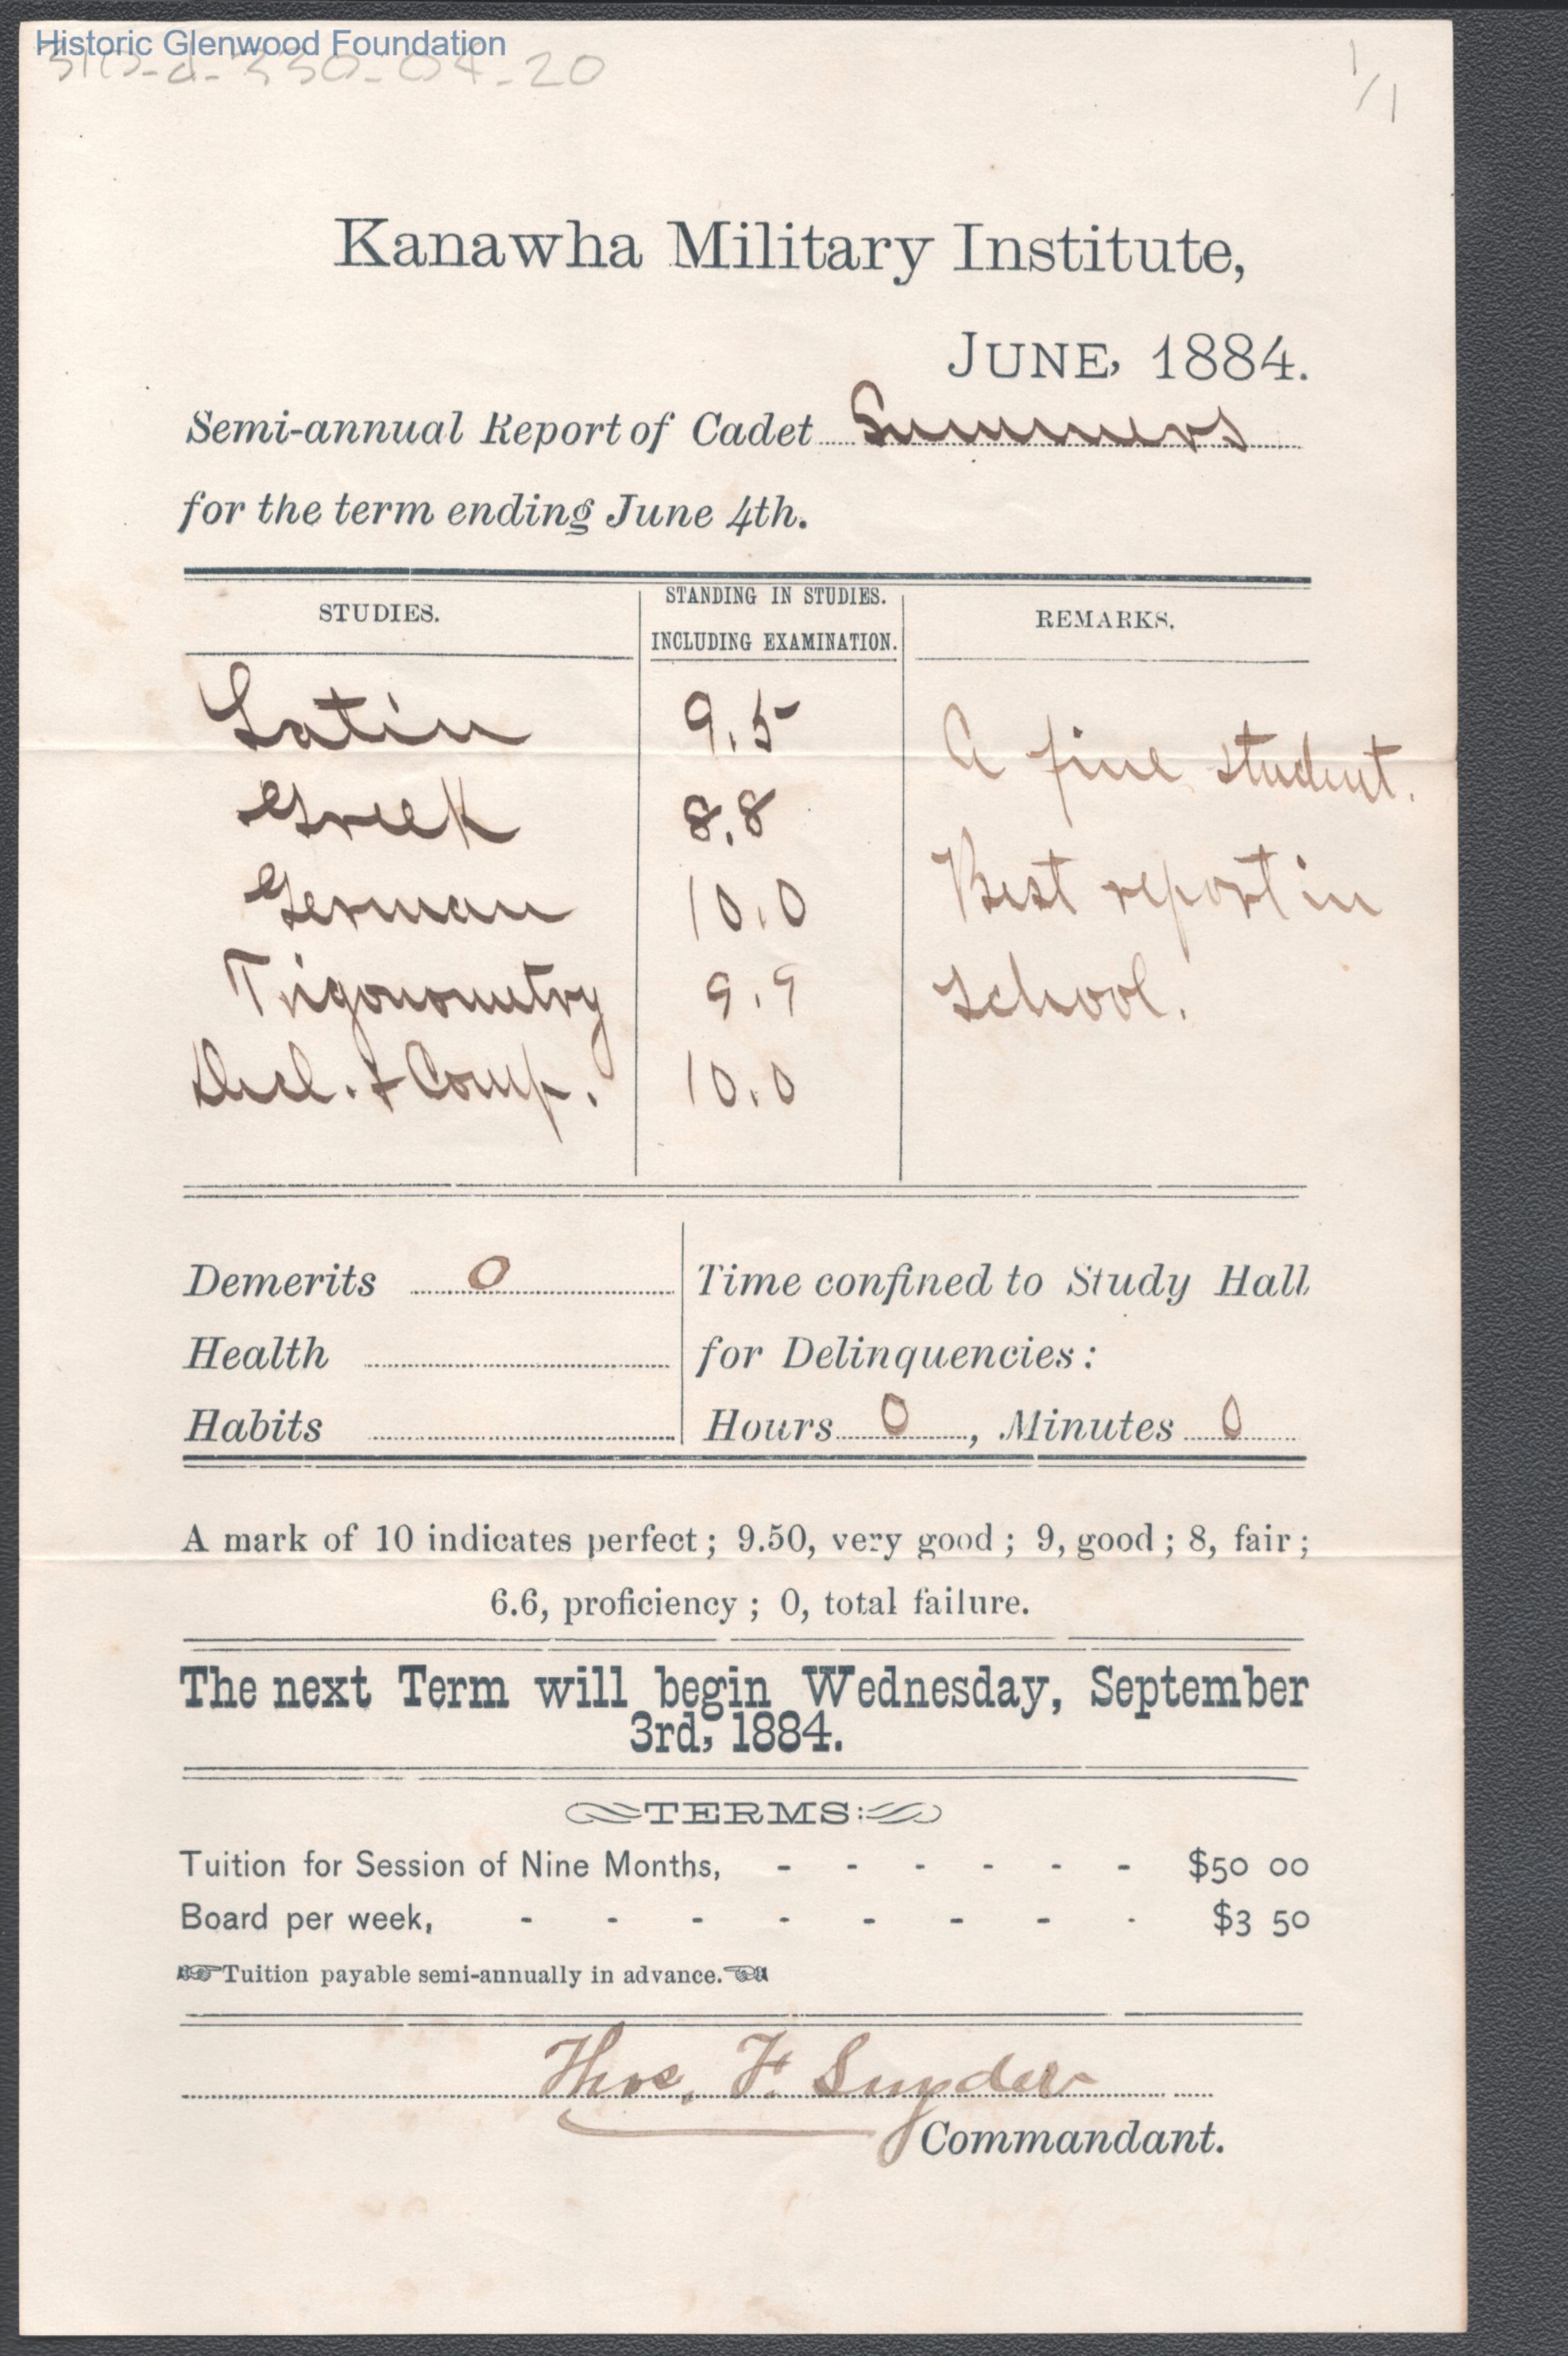 Historic Glenwood Foundation
1/1
Kanawha Military Institute,
JUNE, 1884.
Semi-annual Report of Cadet Summers
for the term ending June 4th.
STUDIES. STANDING IN STUDIES. INCLUDING EXAMINATION. REMARKS.
Latin 9.5 A fine student.
Greek 8.8
German 10.0 Best report in
Trigonometry 9.9 School.
Decl. & Comp. 10.0
Demerits 0 Time confined to Study Hall
Health for Delinquencies:
Habits Hours 0, Minutes 0
A mark of 10 indicates perfect; 9.50, very good; 9, good; 8, fair;
6.6, proficiency; 0, total failure.
The next Term will begin Wednesday, September
3rd, 1884.
TERMS:
Tuition for Session of Nine Months, - - - - - - $50 00
Board per week, - - - - - - - - $3 50
☞Tuition payable semi-annually in advance.☜
Thos. F. Snyder
Commandant.